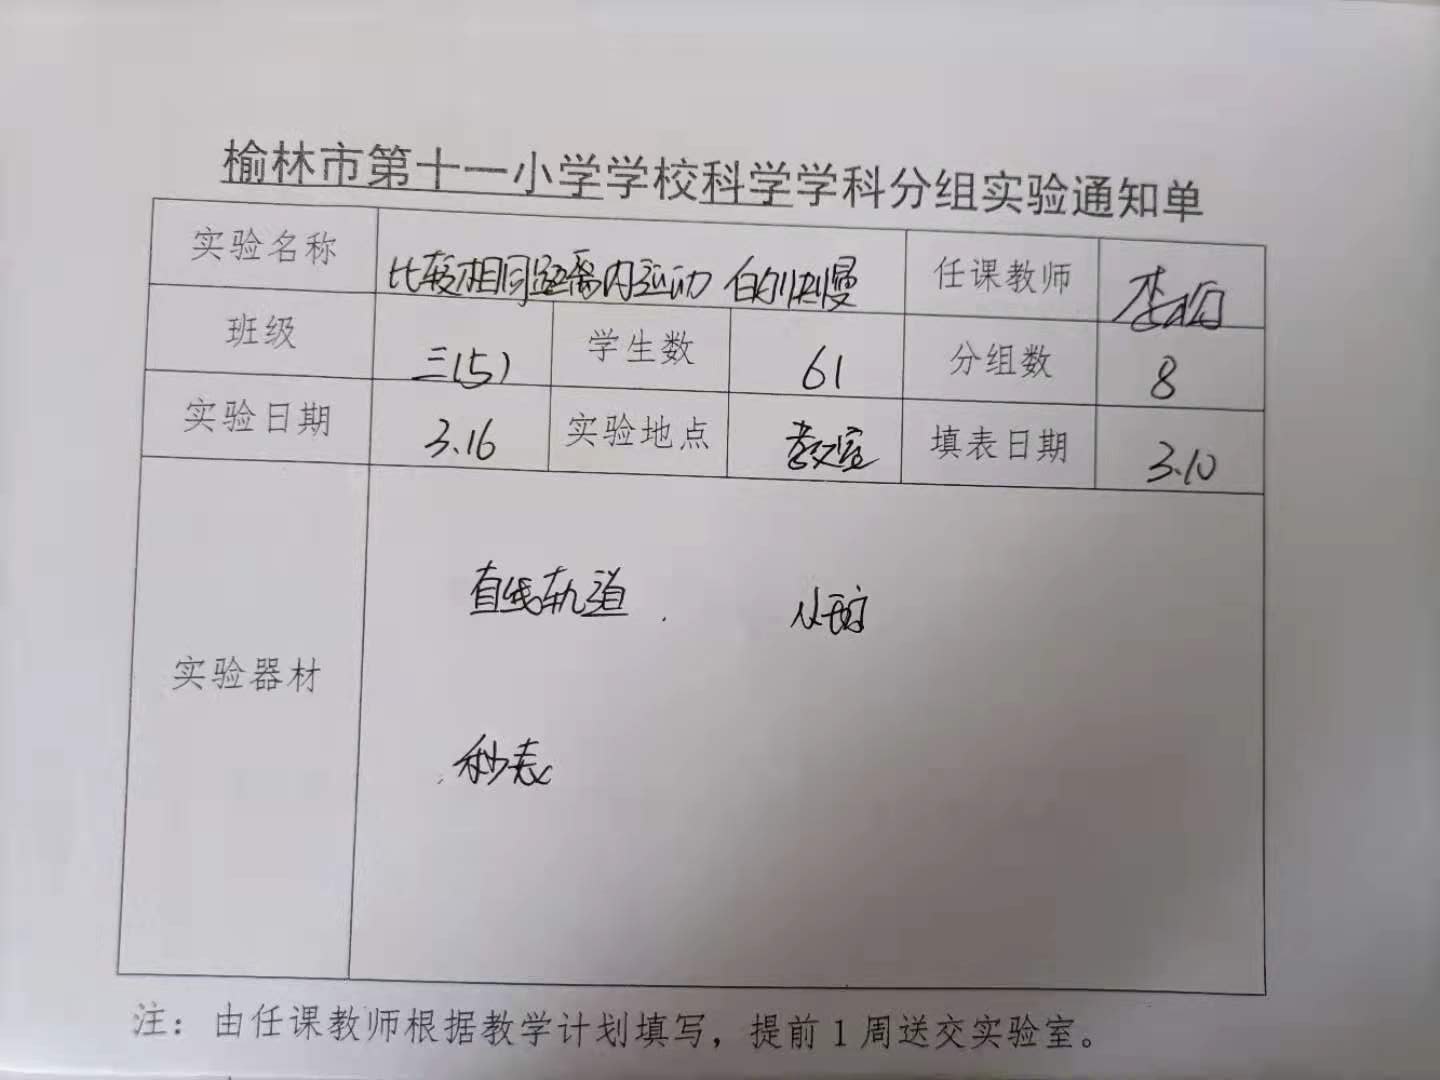 榆林市第十一小学学校科学学科分组实验通知单
实验名称 比较相同距离内运动的快慢 任课教师 李
班级 三(5) 学生数 61 分组数 8
实验日期 3.16 实验地点 教室 填表日期 3.10
直线轨道
实验器材
秒表
注：由任课教师根据教学计划填写，提前1周送交实验室。